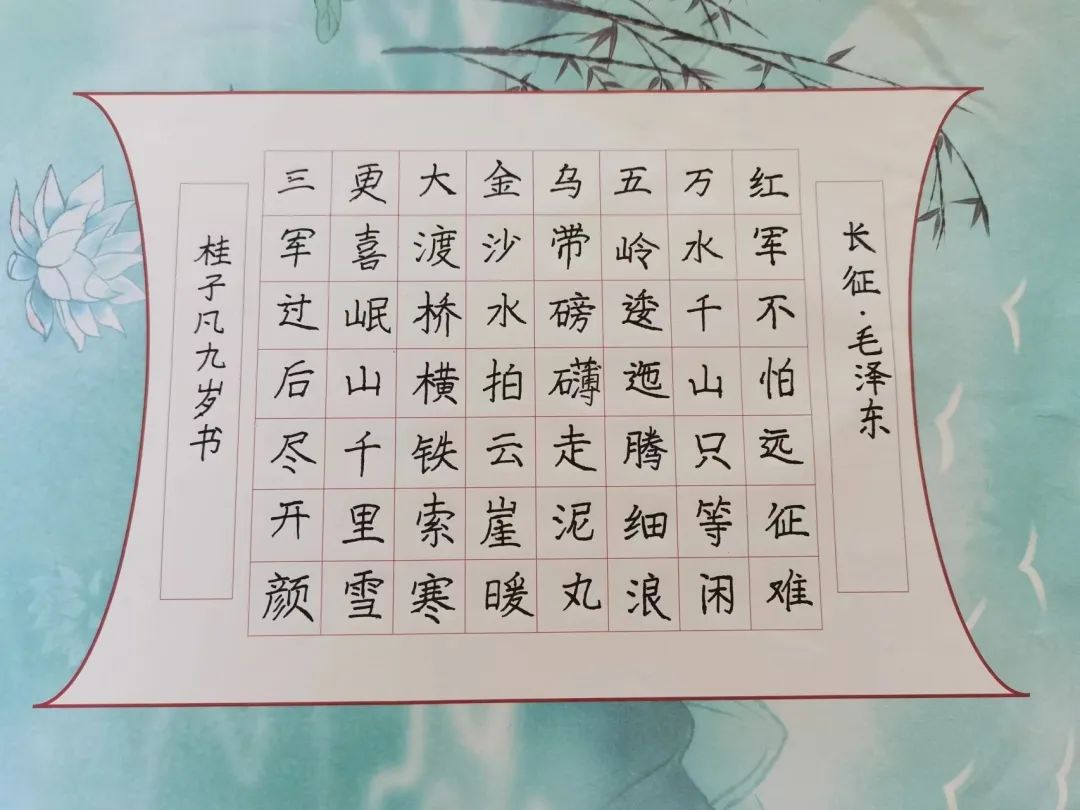 长征·毛泽东
红军不怕远征难
万水千山只等闲
五岭逶迤腾细浪
乌蒙磅礴走泥丸
金沙水拍云崖暖
大渡桥横铁索寒
更喜岷山千里雪
三军过后尽开颜
桂子凡九岁书